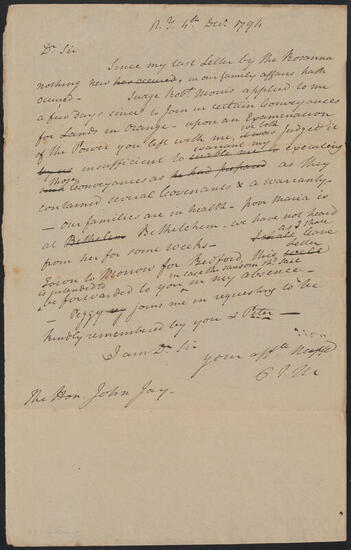 N.Y. 4th Decr. 1794
Dr Sir
Since my last Letter by the Rosanna
nothing new has occured, in our family affairs hath
occured. - Judge Robt Morris applied to me
a few days since to Join in certain Conveyances
for Lands in Orange - upon an Examination
of the Power you left with me, we both Judged it
insufficient to warrant my executing
Those Conveyances as he had prepared as they
contained several Covenants & a warranty -
- our families are in health - poor Maria is
at Bethelem Bethlehem - we have not heard
from her for some weeks - I shall as I shall leave
Town to Morrow for Bedford, this Letter
is intended to in case the Sansom sail
be forwarded to you in my absence -
Peggy joins me in requesting to be
kindly remembered by you & Peter -
I am Dr Sir
your affte Nephew
P. J. M
The Hon. John Jay.